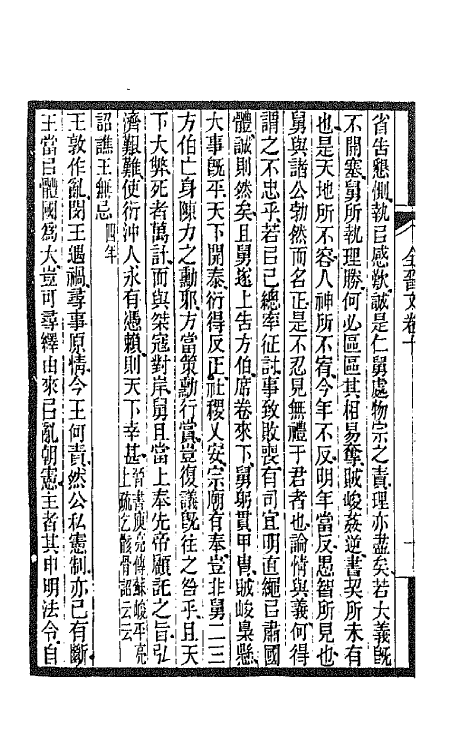 省告懇惻執㠯感歎誠是仁舅處物宗之責理亦盡矣若大義旣
不開塞舅所執理勝何必區區其相易奪賊峻姦逆書契所未有
也是天地所不容人神所不宥今年不反明年當反愚智所見也
舅與諸公勃然而召正是不忍見無禮于君者也論情與義何得
謂之不忠乎若㠯己總率征討事致敗喪有司宜明直繩㠯肅國
體誠則然矣且舅遂上告方伯席卷來下舅躬貫甲胄賊峻梟懸
大事旣平天下開泰衍得反正社稷乂安宗廟有奉豈非舅二三
方伯亡身陳力之勳邪方當策勳行賞豈復議旣往之咎乎且天
下大弊死者萬計而與桀寇對岸舅且當上奉先帝顧託之旨弘
濟艱難使衍沖人永有憑賴則天下幸甚晉書庾亮傳蘇峻平亮上疏乞骸骨詔云云
詔譙王無忌四年
王敦作亂閔王遇禍尋事原情今王何責然公私憲制亦已有斷
王當㠯體國爲大豈可尋繹由來㠯亂朝憲主者其申明法令自
全晉文卷十